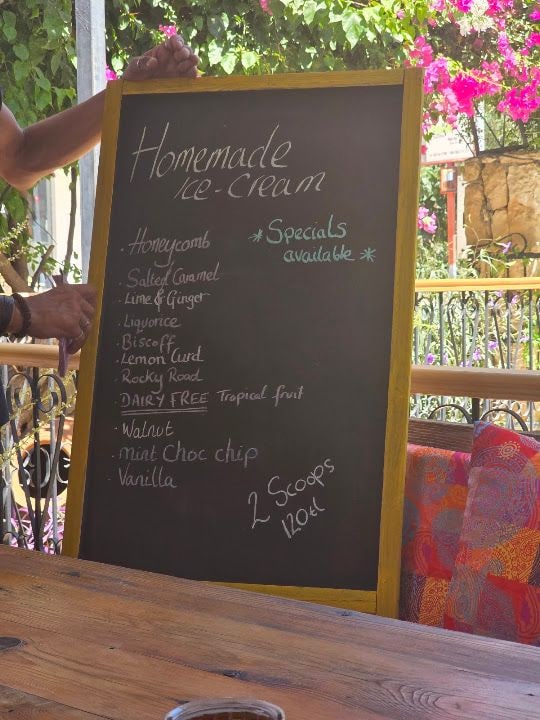 Homemade
Ice-Cream
*Specials
available*
· Honeycomb
· Salted Caramel
· Lime & Ginger
· Liquorice
· Biscoff
· Lemon Curd
· Rocky Road
· DAIRY FREE Tropical fruit
· Walnut
· mint Choc chip
· Vanilla
2 Scoops
120tl